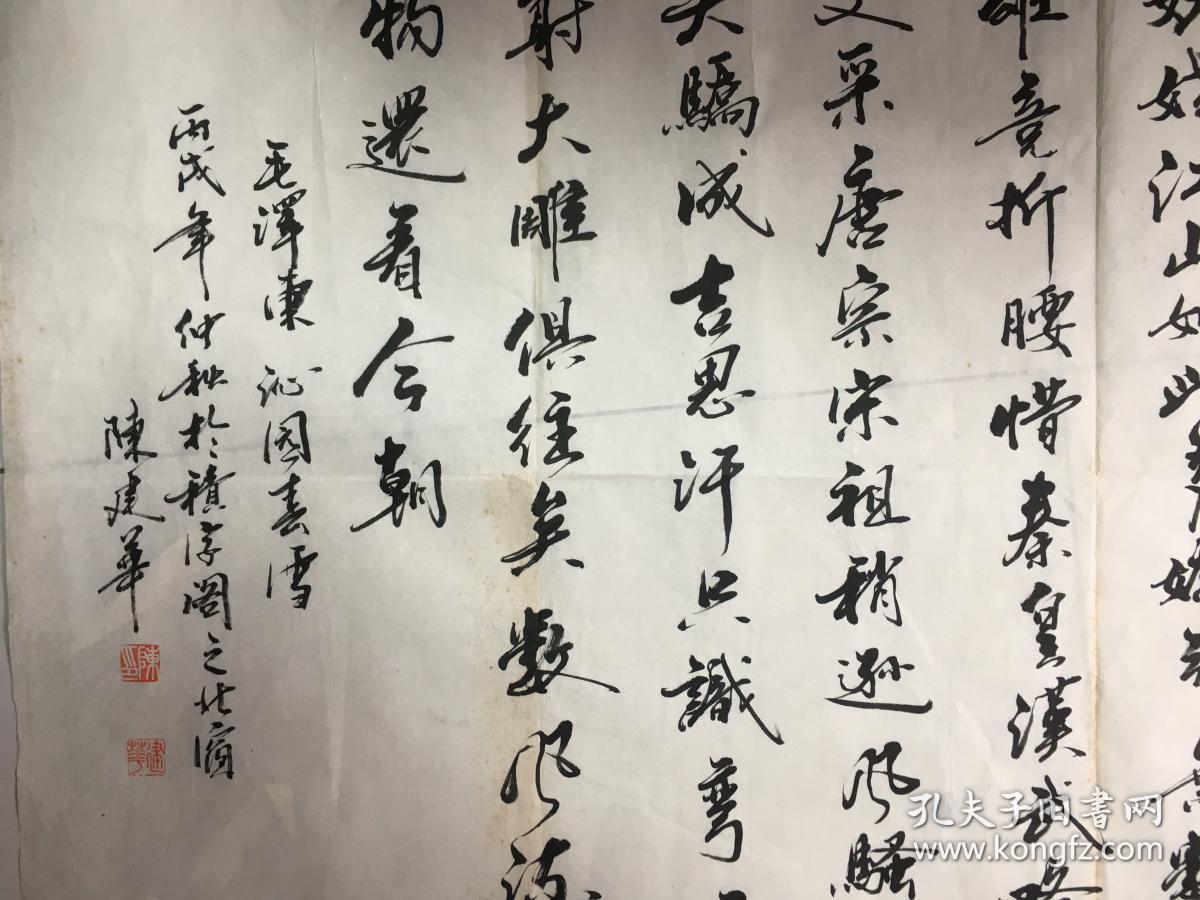 江山如此多嬌無數
雄竞折腰惜秦皇漢武略
文采唐宗宋祖稍遜风騷
天驕成吉思汗只識彎
射大雕俱往矣數风流
物還看今朝
毛澤東 沁園春雪
丙戌年仲秋於積淳阁之北窗
陳建華
陳印
建華
孔夫子旧書网
www.kongfz.com